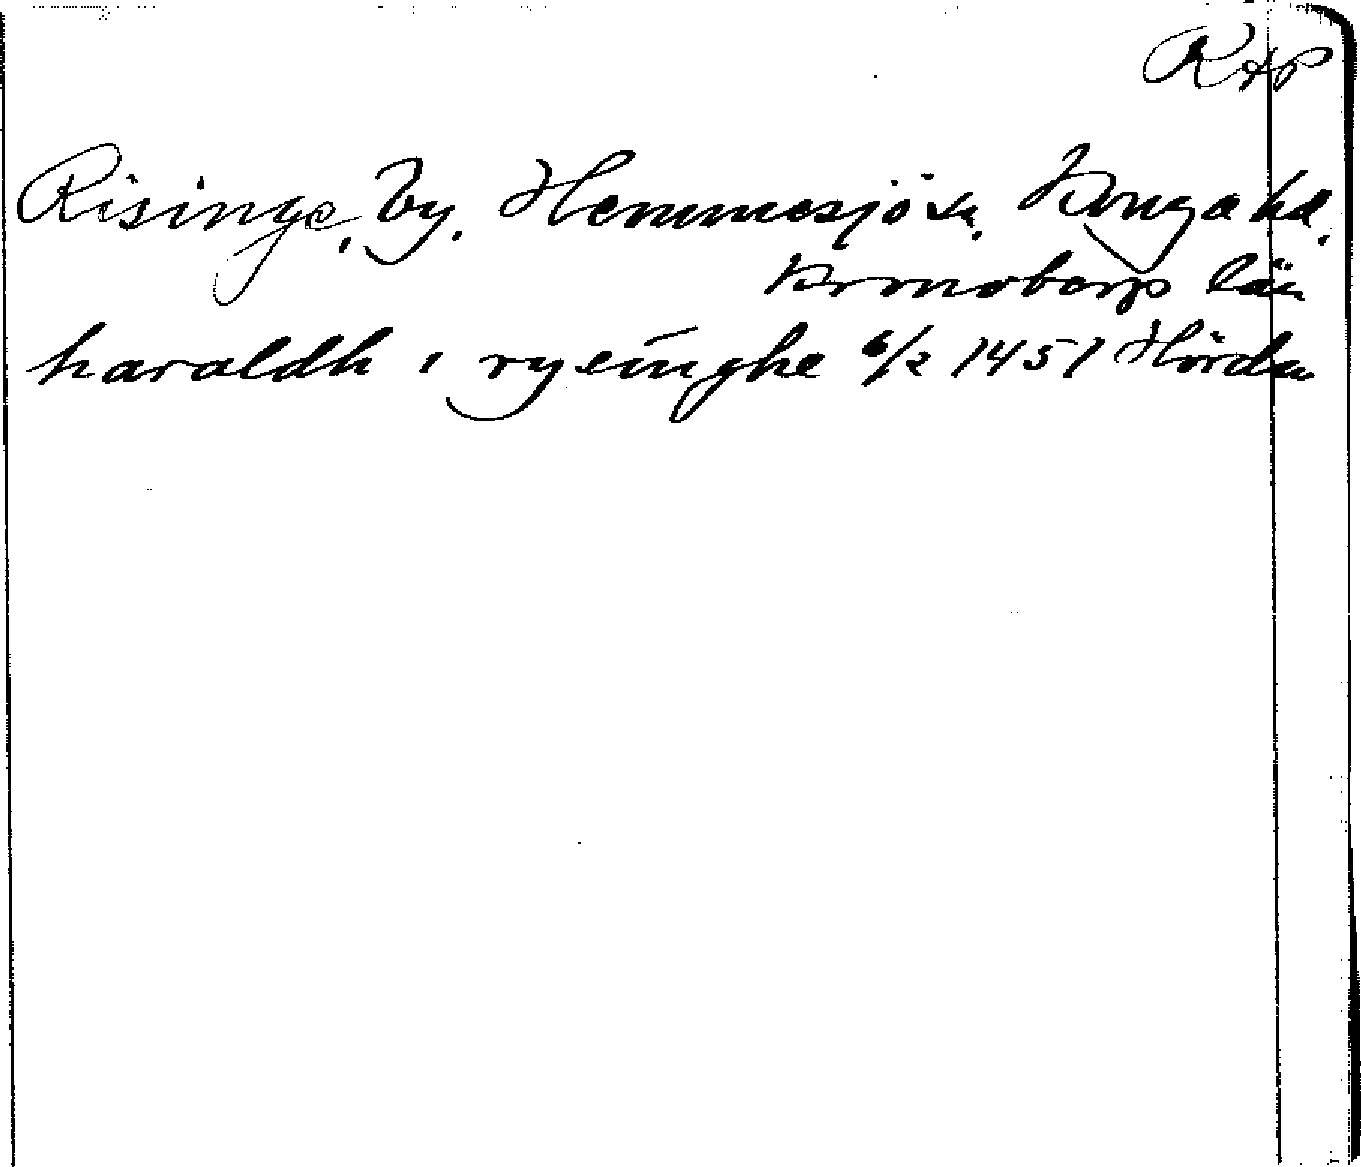 RAP
Risinge, by, Hemmesjö sn, Konga hd,
Kronobergs län
haraldh i rysinghe 6/2 1451